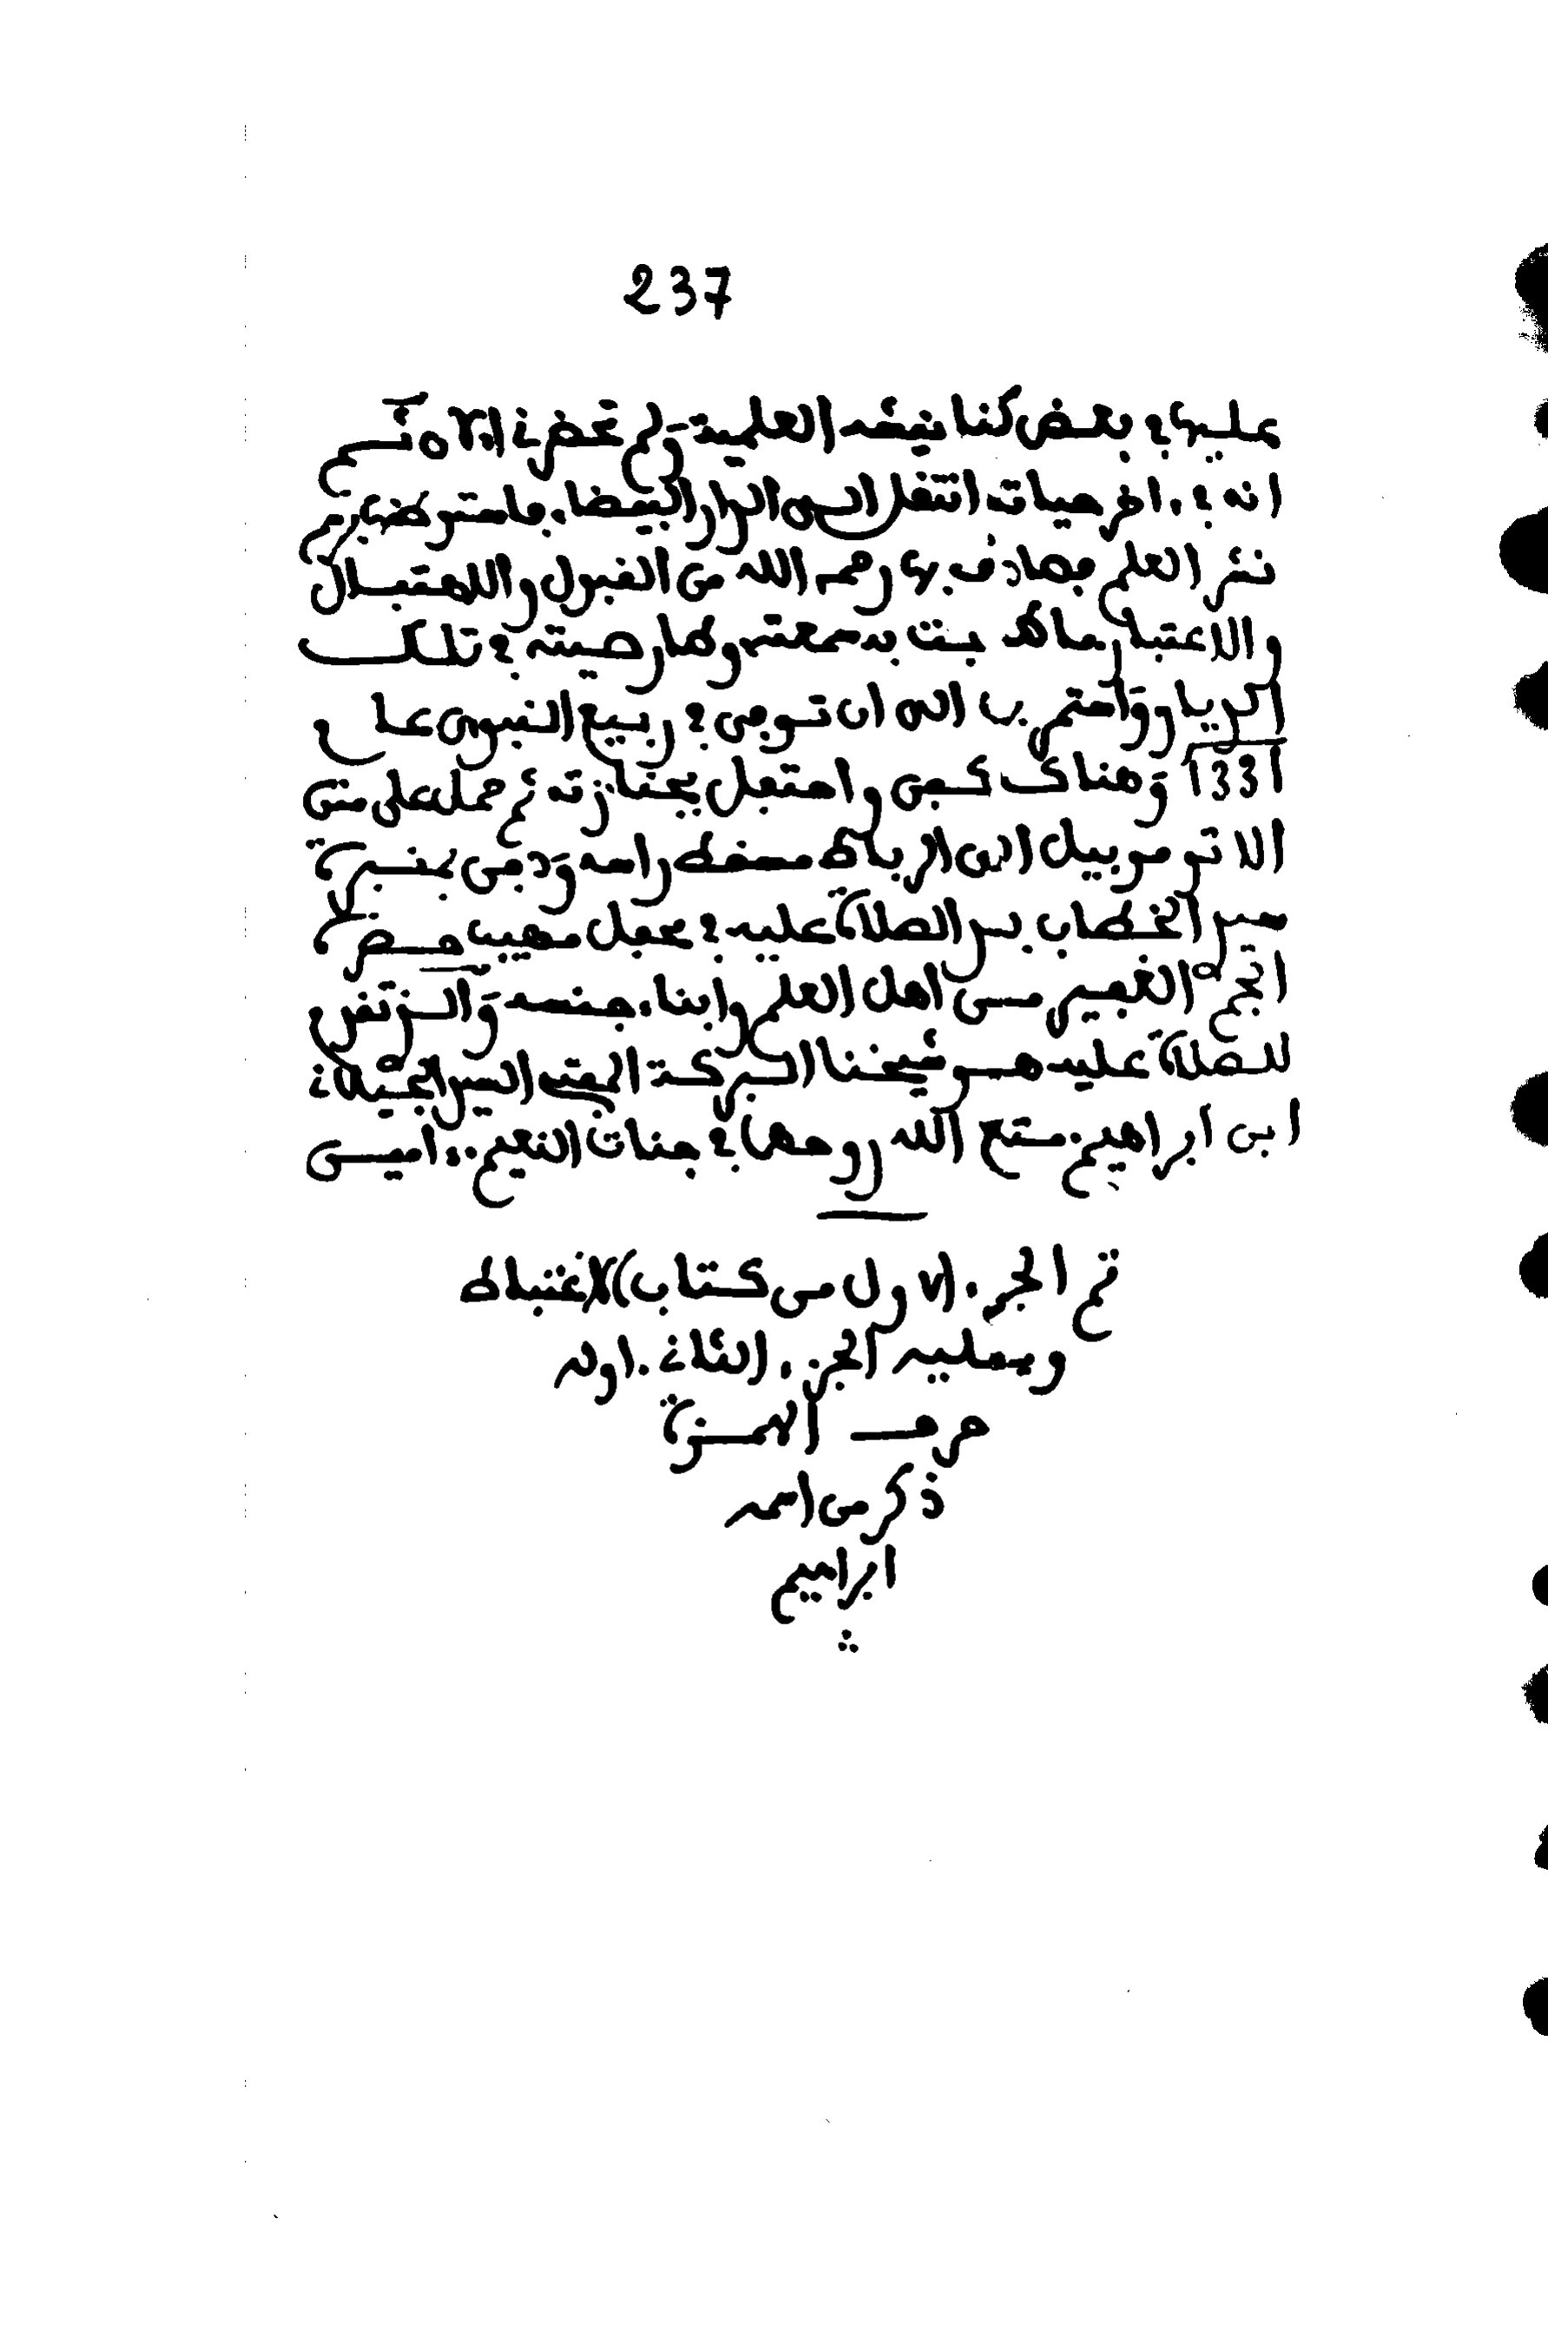 237
عليها في بعض كنانيشه العلمية ولم تحضرني الان ثم
انه في اخر حياته انتقل الى الدار البيضاء فاستوطنها يريم
نشر العلم فصادف بها رحمه الله من القبول والاهتبال
والاعتبار ماطبت به سمعته وطار صيته في تلك
الربا واستمر بها الى ان توفي في ربيع النبوي عام
1331 وهناك كفن واحتفل بجنازته ثم حمل على متن
الاتوموبيل الى الرباط مسقط راسه ودفن بمقبرة
سيد الخطاب بعد الصلاة عليه في محفل مهيب حضره
الجم الغفير من اهل العلم وابناء جنسه والذي تقدم
للصلاة عليه هو شيخنا البركة المفتي السيد الجيلاني
ابن ابراهيم متع الله روحها في جنات النعيم .. امين
تم الجزء الاول من كتاب الاغتباط
ويليه الجزء الثاني اوله
حرف الهمزة
ذكر من اسمه
ابراهيم